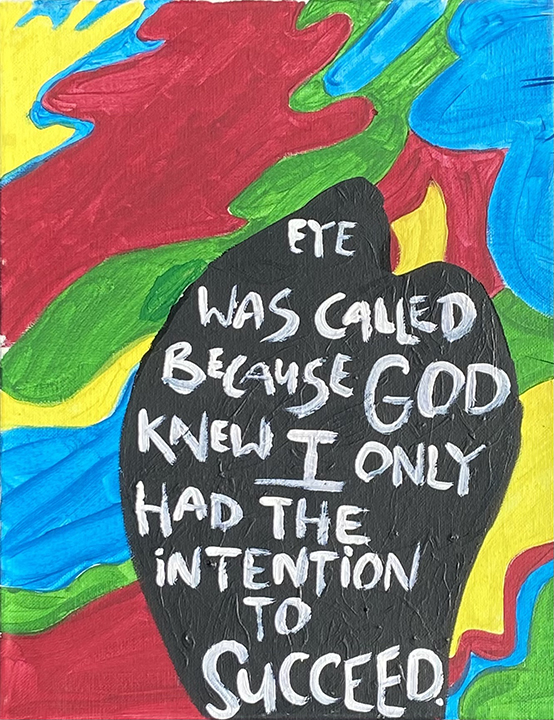 EYE
WAS CALLED
BECAUSE GOD
KNEW I ONLY
HAD THE
iNTENTiON
TO
SUCCEED.